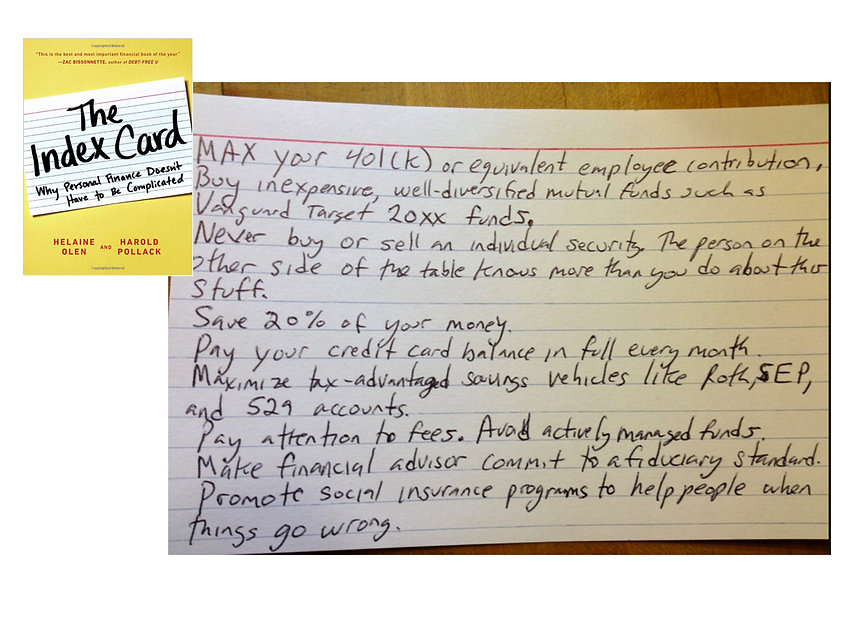 Copyrighted Material
"This is the best and most important financial book of the year."
—ZAC BISSONNETTE, author of DEBT-FREE U
The
Index Card
Why Personal Finance Doesn't
Have to Be Complicated
HELAINE OLEN AND HAROLD POLLACK
Copyrighted Material
MAX your 401(k) or equivalent employee contribution.
Buy inexpensive, well-diversified mutual funds such as
Vanguard Target 20xx funds.
Never buy or sell an individual security. The person on the
other side of the table knows more than you do about this
stuff.
Save 20% of your money.
Pay your credit card balance in full every month.
Maximize tax-advantaged savings vehicles like Roth, SEP,
and 529 accounts.
Pay attention to fees. Avoid actively managed funds.
Make financial advisor commit to a fiduciary standard.
Promote social insurance programs to help people when
things go wrong.